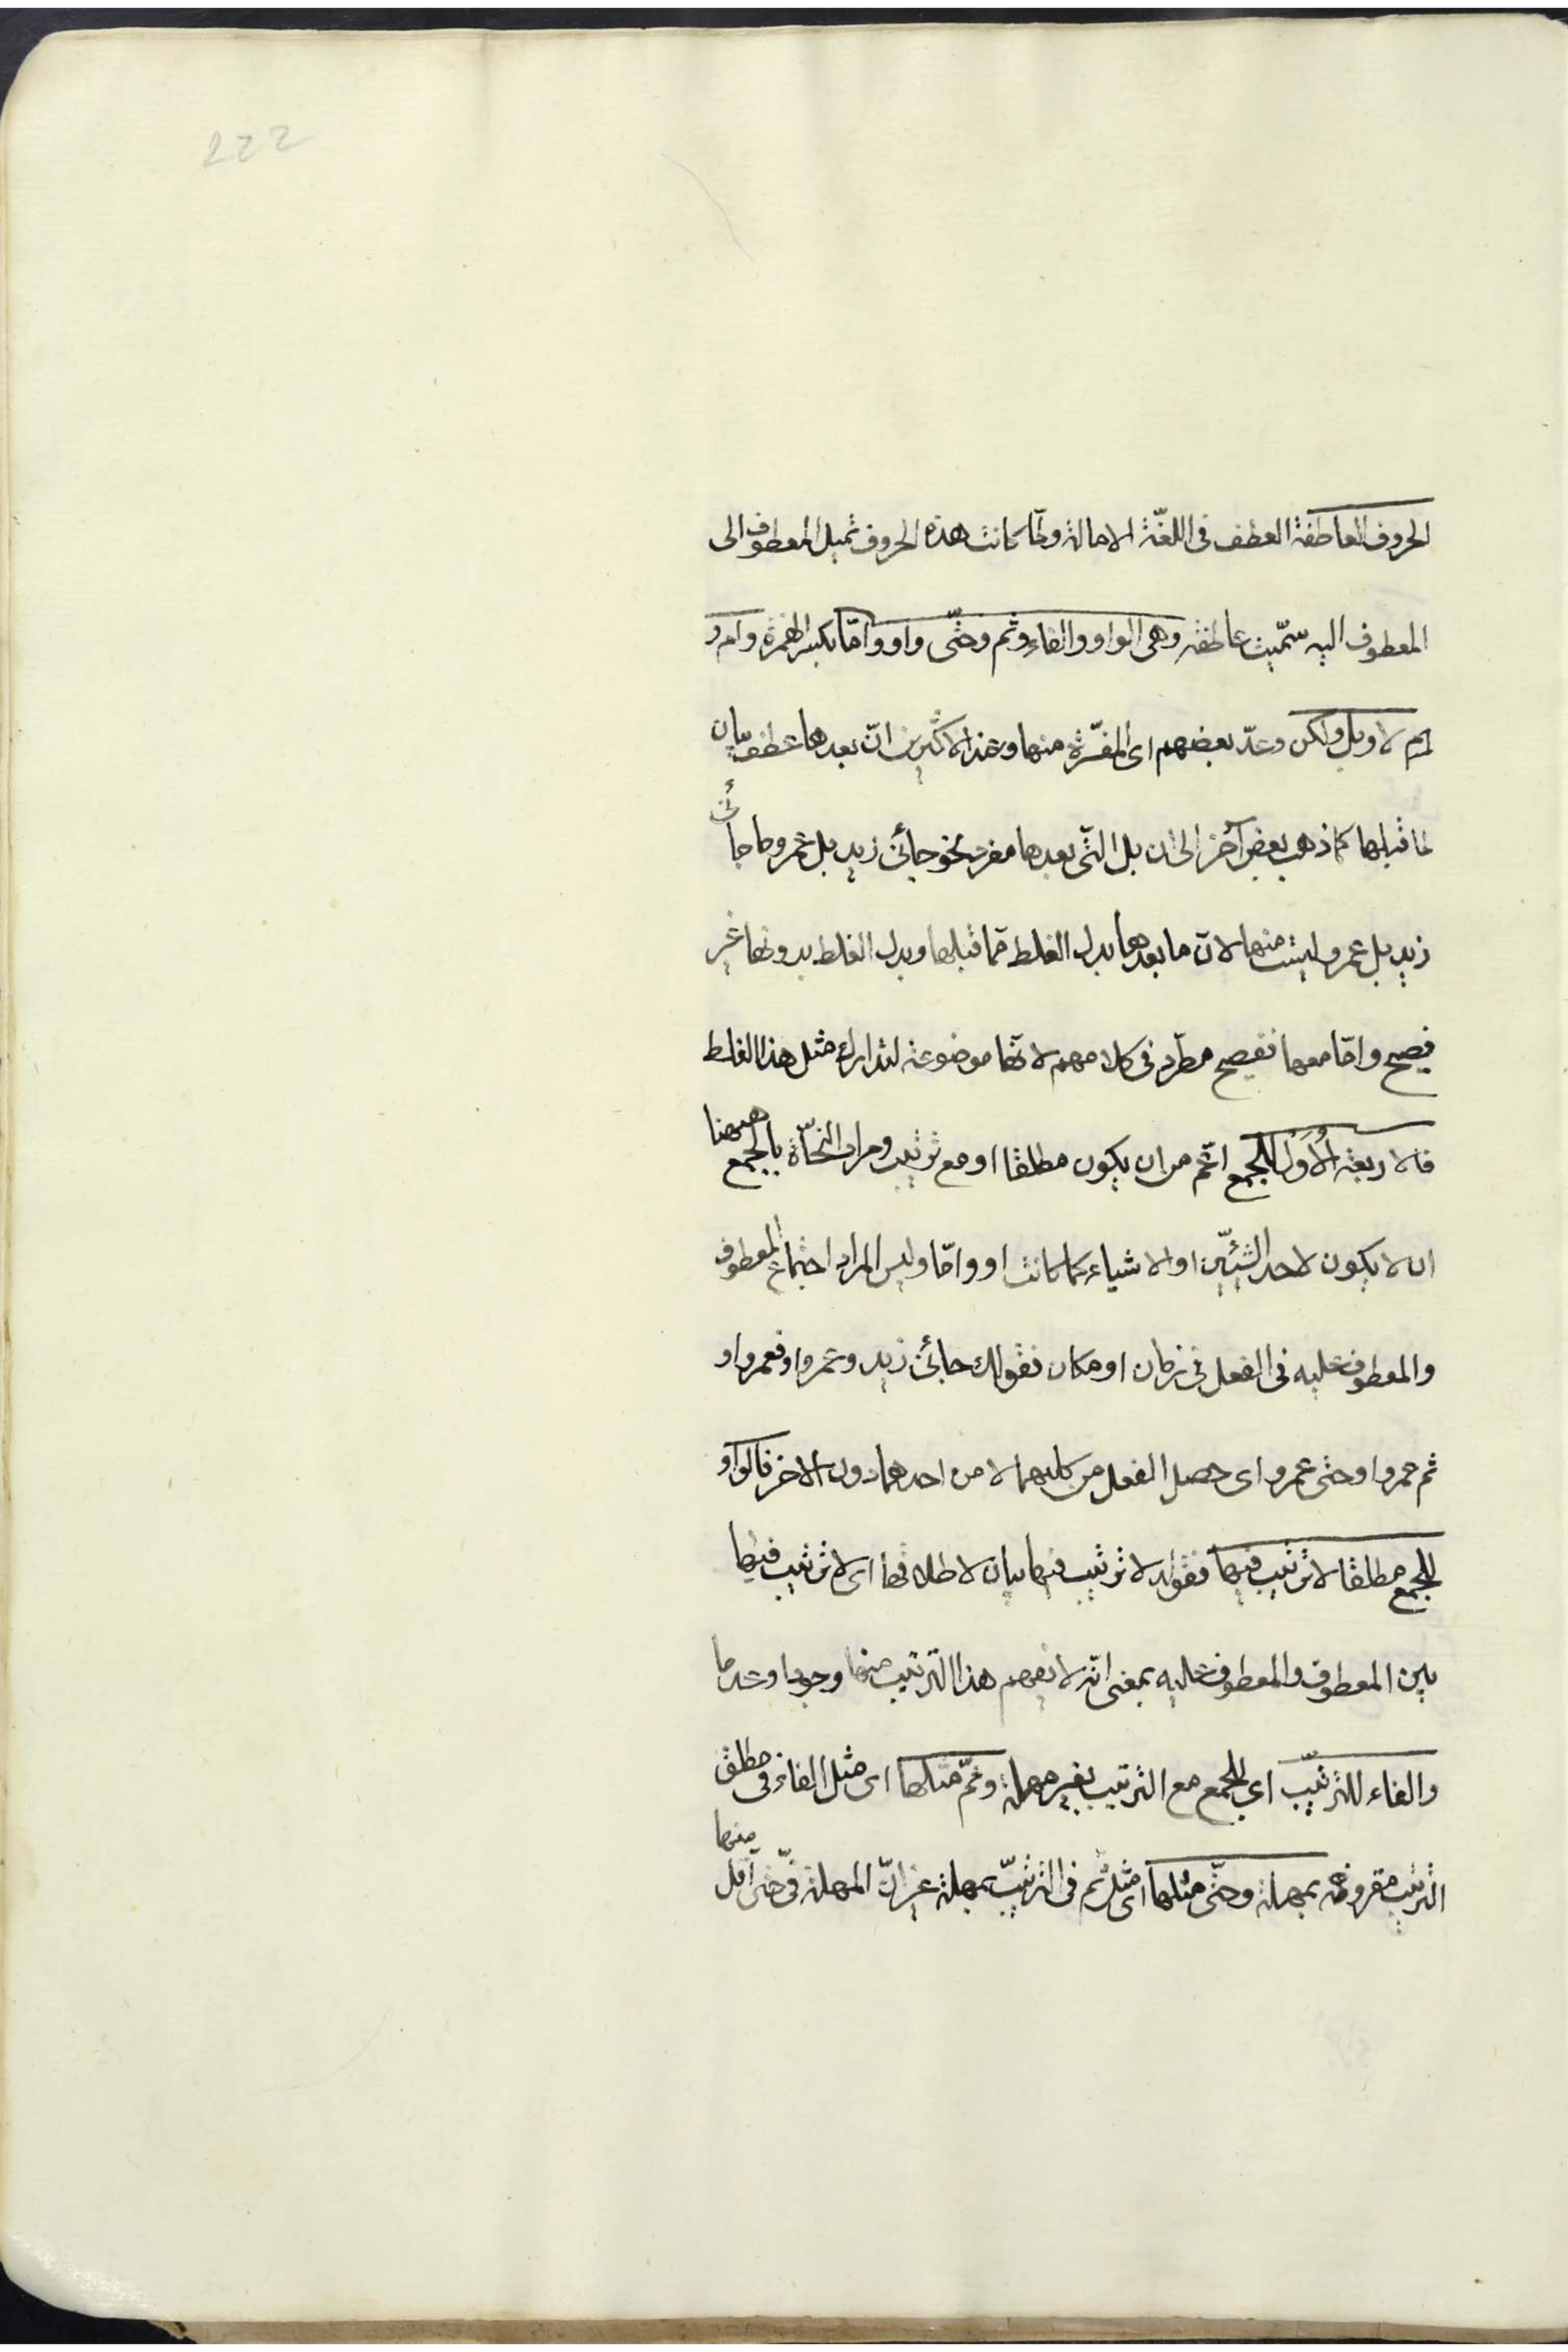 222
الحروف العاطفة العطف فى اللغة الامالة ولمّا كانت هذه الحروف تميل المعطوف الى
المعطوف اليه سمّيت عاطفة وهى الواو والفاء وثم وحتّى واو وامّا بكسر الهمزة وام و
لا وبل ولكن وعدّ بعضهم اى المفسّرة منها وعند الاكثرين انّ بعدها عطف بيان
لما قبلها كما ذهب بعض آخر الى ان بل التى بعدها مفرد نحو جائنى زيد بل عمرو وما جائنى
زيد بل عمرو ليست منها لانّ ما بعدها بدل الغلط ممّا قبلها وبدل الغلط بدونها غير
فصيح وامّا معها ففصيح مطّرد فى كلامهم لانّها موضوعة لتدارك مثل هذا الغلط
فالاربعة الاُوَل للجمع اعمّ من ان يكون مطلقا او مع ترتيب ومراد النحّاة بالجمع ههنا
ان لا يكون لاحد الشيئين او الاشياء كما كانت او وامّا وليس المراد اجتماع المعطوف
والمعطوف عليه فى الفعل فى زمان او مكان فقولك جائنى زيد وعمرو او فعمرو او
ثم عمرو او حتى عمرو اى حصل الفعل من كليهما لا من احدهما دون الاخر فالواو
للجمع مطلقا لا ترتيب فيها فقوله لا ترتيب فيها بيان لاطلاقها اى لا ترتيب فيها
بين المعطوف والمعطوف عليه بمعنى انّه لا يفهم هذا الترتيب منها وجودا وعدما
والفاء للترتيب اى للجمع مع الترتيب بغير مهملة وثمّ مثلها اى مثل الفاء فى مطلق
الترتيب مقرونة بمهلة وحتّى مثلها اى مثل ثم فى الترتيب بمهلة غير انّ المهلة فى حتى اقل منها